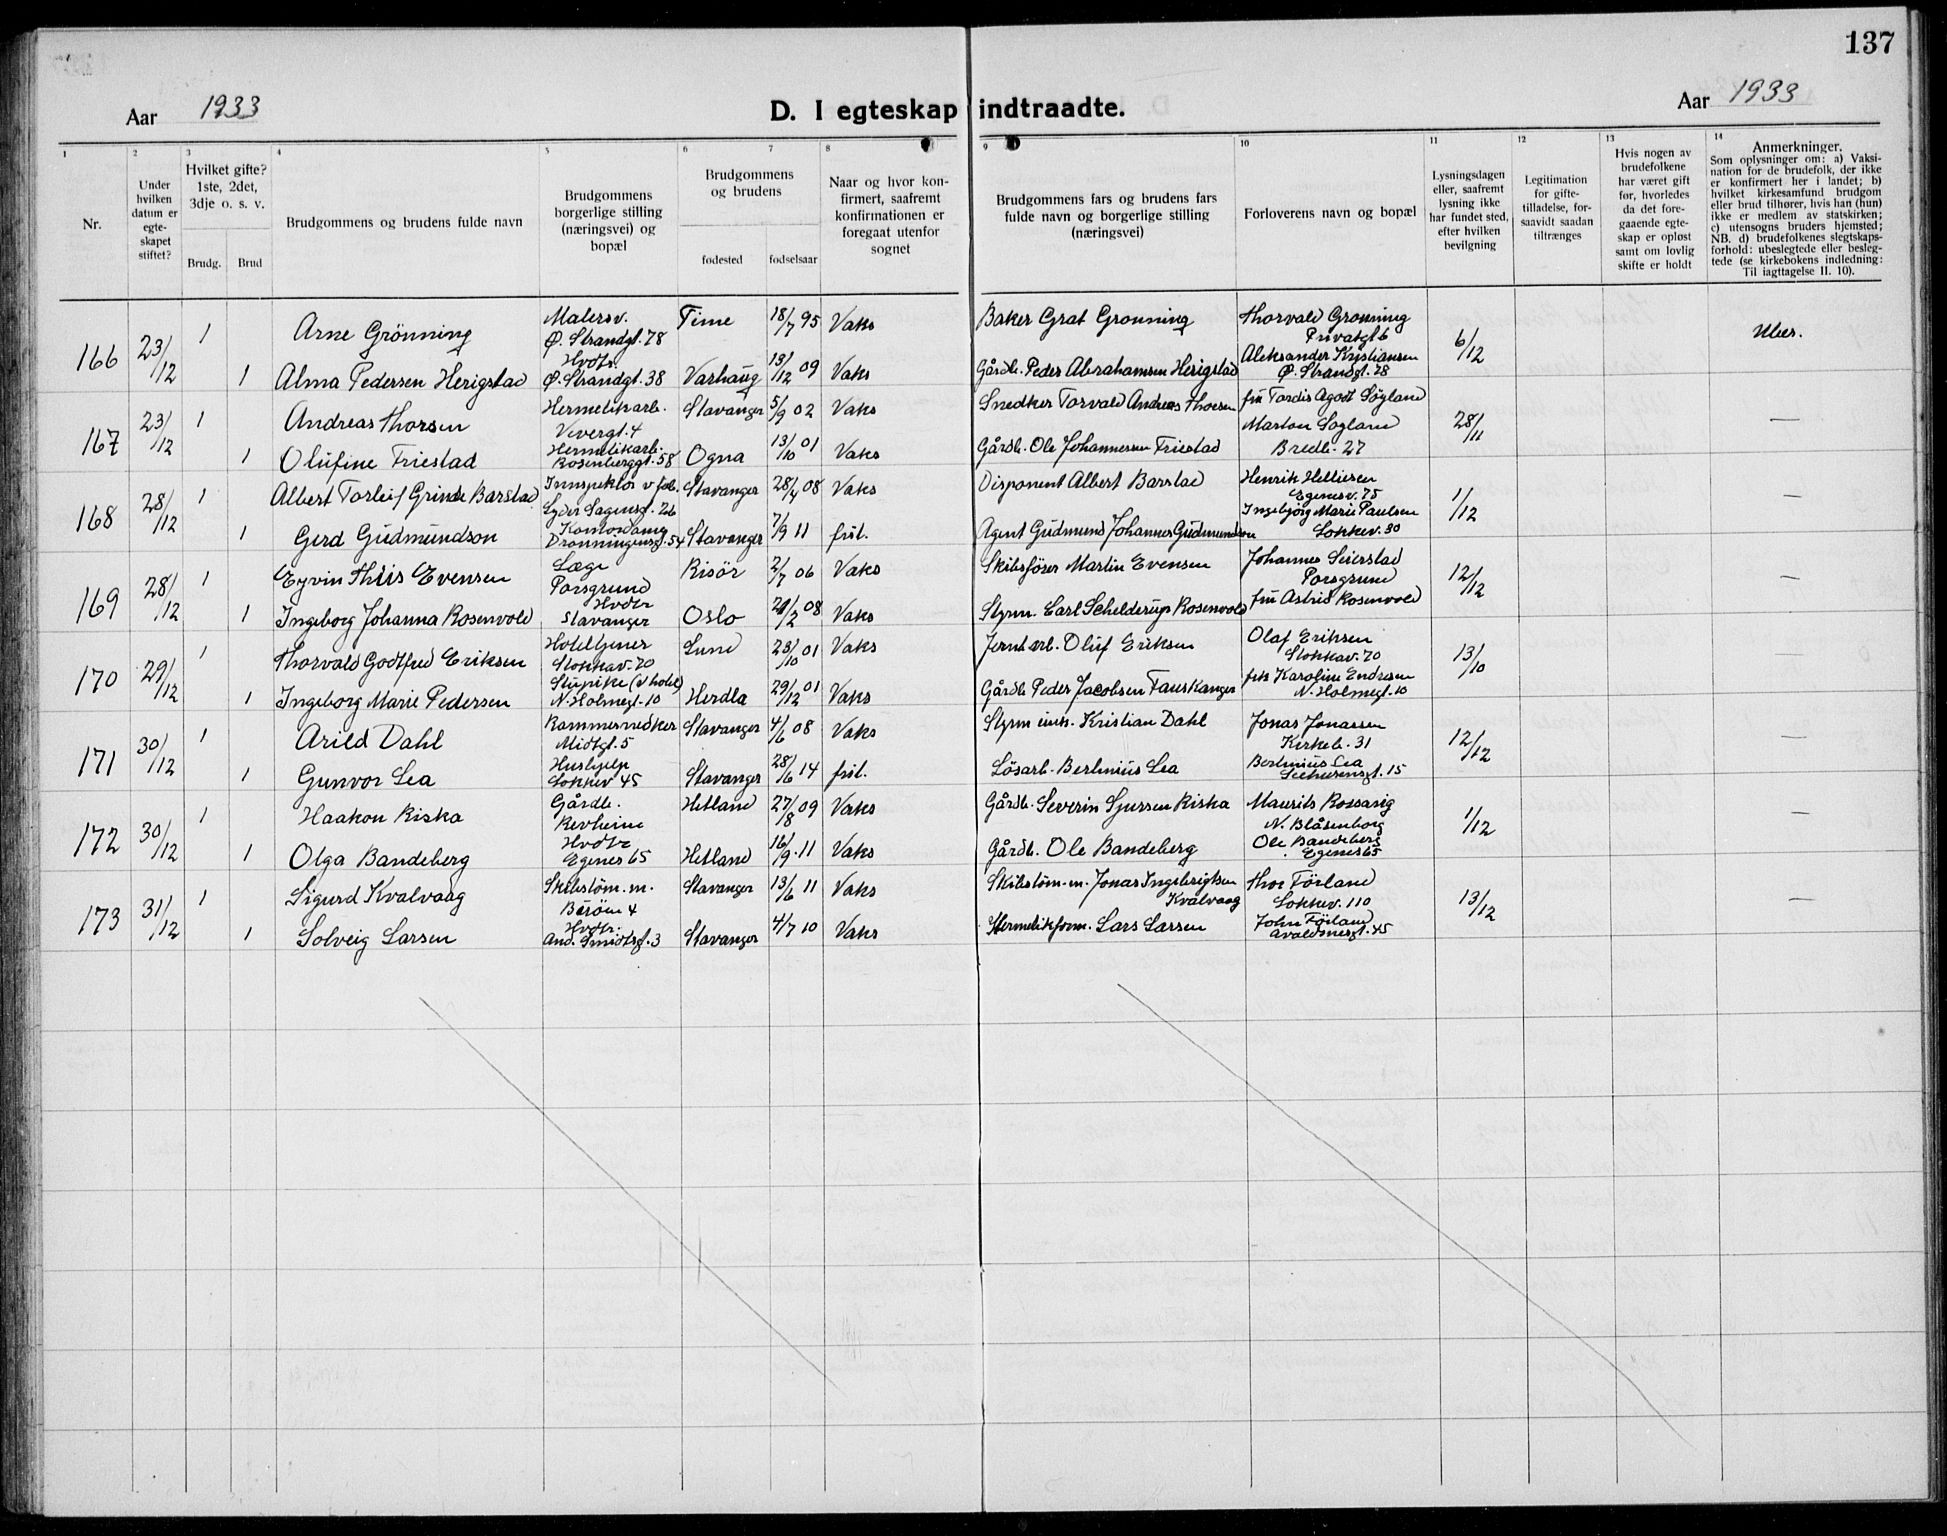 137
Aar 1933
D. I egteskap indtraadte.
Aar 1933
1 2 3 4 5 6 7 8 9 10 11 12 13 14
Nr.
Under hvilken datum er egte-skapet stiftet?
Hvilket gifte? 1ste, 2det, 3dje o. s. v.
Brudg. Brud
Brudgommens og brudens fulde navn
Brudgommens borgerlige stilling (næringsvei) og bopæl
Brudgommens og brudens
fødested fødselsaar
Naar og hvor kon-firmert, saafremt konfirmationen er foregaat utenfor sognet
Brudgommens fars og brudens fars fulde navn og borgerlige stilling (næringsvei)
Forloverens navn og bopæl
Lysningsdagen eller, saafremt lysning ikke har fundet sted, efter hvilken bevilgning
Legitimation for gifte-tilladelse, for-saavidt saadan tiltrænges
Hvis nogen av brudefolkene har været gift før, hvorledes da det fore-gaaende egte-skap er opløst samt om lovlig skifte er holdt
Anmerkninger.
Som oplysninger om: a) Vaksi-nation for de brudefolk, der ikke er konfirmert her i landet; b) hvilket kirkesamfund brudgom eller brud tilhører, hvis han (hun) ikke er medlem av statskirken; c) utensogns bruders hjemsted; NB. d) brudefolkenes slegtskaps-forhold: ubeslegtede eller besleg-tede (se kirkebokens indledning: Til iagttagelse II. 10).
166 23/12 1 Arne Grönning Malersv. Ø. Strandgt. 78 Time 18/7 95 Vaks Baker Grat Gronning Thorvald Gronning Privatgt 6 6/12 Ubes.
1 Alma Pedersen Herigstad Hvdtr. Ø. Strandgt. 38 Varhaug 13/12 09 Vaks Gårdb. Peder Abrahamsen Herigstad Aleksander Kristiansen Ø. Strandgt. 78
167 23/12 1 Andreas Thorsen Hermetikarb. Vevergt. 4 Stavanger 5/9 02 Vaks Snedker Torvald Andreas Thorsen fru Tordis Agodt Søyland 28/11 —
1 Olufine Friestad Hermetikarb. Rosenberggt. 58 Ogna 13/10 01 Vaks Gårdb. Ole Johannessen Friestad Marton Søyland Bredb. 27
168 28/12 1 Albert Torleif Grinde Barstad Innspektör v fab. Lyder Sagensgt. 26 Stavanger 28/4 08 Vaks Disponent Albert Barstad Henrik Helliesen Egenesv. 75 1/12 —
1 Gerd Gudmundson Kontordame Dronningensgt. 54 Stavanger 7/9 11 fril. Agent Gudmund Johannes Gudmundson Ingebjørg Marie Paulsen Lokkev. 30
169 28/12 1 Eyvin Thiis Evensen Læge Porsgrund Risör 2/7 06 Vaks Skibsförer Martin Evensen Johannes Seierstad Porsgrund 12/12 —
1 Ingeborg Johanna Rosenvold Hvdtr Stavanger Oslo 21/2 08 Vaks Styrm. Carl Schelderup Rosenvold fru Astrid Rosenvold
170 29/12 1 Thorvald Godtfred Eriksen Hotelltjener Stokkav. 70 Lund 23/10 01 Vaks Jernb arb. Oluf Eriksen Olaf Eriksen Stokkav. 70 13/10 —
1 Ingeborg Marie Pedersen Stupike (v hotel) N. Holmegt. 10 Herdla 29/12 01 Vaks Gårdb Peder Jacobsen Fauskanger frk Karoline Endresen N. Holmegt. 10
171 30/12 1 Arild Dahl Rammesnedker Midtgt. 5 Stavanger 4/6 08 Vaks Styrm Kristian Dahl Jonas Jonassen Kirkeb. 31 12/12 —
1 Gunvor Lea Hushjelp Lokkev 45 Stavanger 28/6 14 fril. Lösarb. Bertinius Lea Bertinius Lea 15
172 30/12 1 Haakon Riska Gårdb. Revheim Hetland 27/8 09 Vaks Gårdb. Severin Sjursen Riska Maurits Rossavig N. Blåsenborg 1/12 —
1 Olga Bandeberg Hvdtr Egenes 65 Hetland 16/9 11 Vaks Gårdb. Ole Bandeberg Ole Bandeberg Egenes 65
173 31/12 1 Sigurd Kvalvaag Skibstöm. m. Stavanger 13/6 11 Vaks Skibstöm. m. Jonas Ingebrigtsen Kvalvaag Thor Förland Lokkev. 110 13/12 —
1 Solveig Larsen Hvdtr. And. Smidtsgt. 3 Stavanger 4/7 10 Vaks Hermetikform. Lars Larsen John Förland Avaldsnesgt. 45